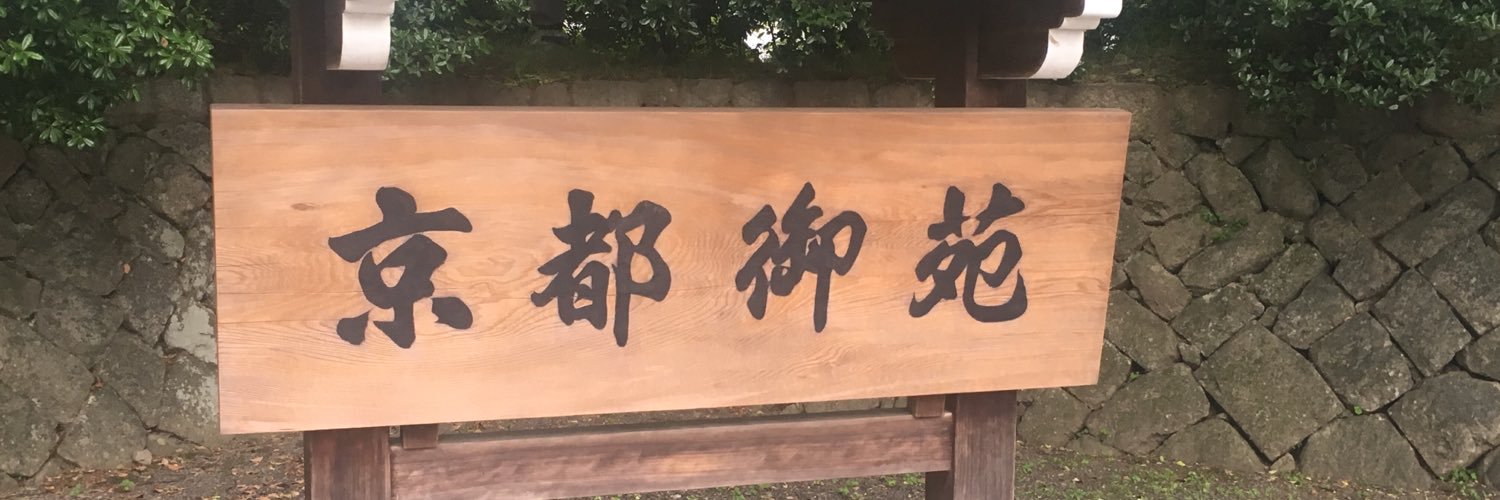 京都御苑